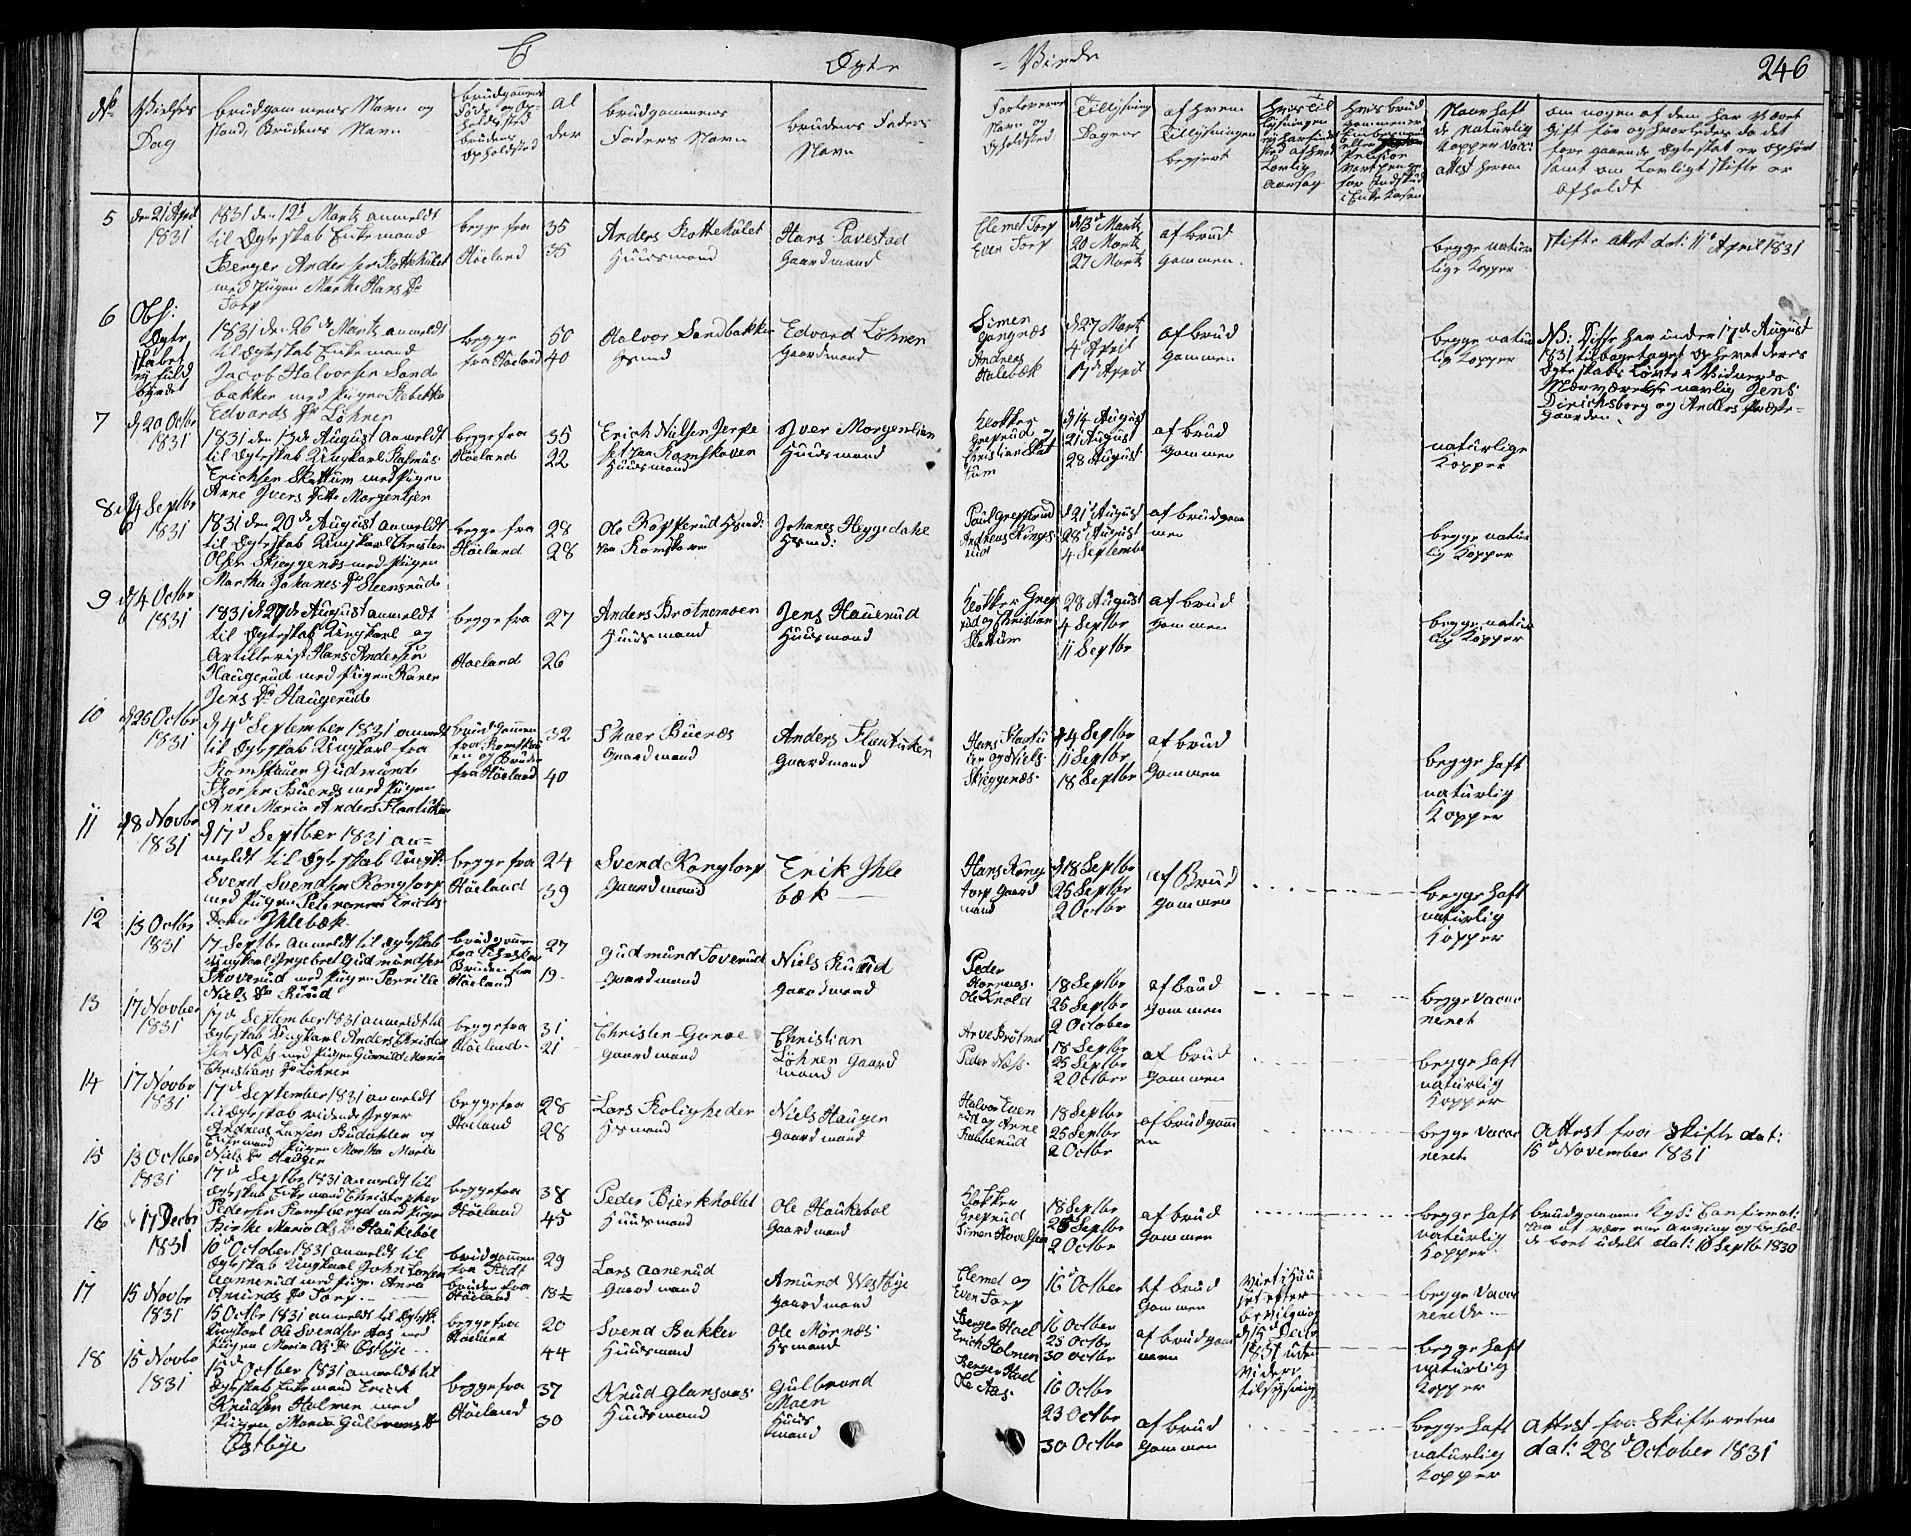 6
Ægte
- Viede
246
No
Vielses Dag
brudgommens Navn og
stand, Brudens Navn
brudgommens
Føde og Op-
holdsted
brudens
Opholdsted
al
der
brudgommens
Faders Navn
brudens Faders
Navn
Forlovernes
Navn og
Opholdsted
Tillysning
Dagene
af hvem
Tillysningen
begjert
Naar haft
de naturlig
Kopper Vacc:
attest herom
om nogen af dem har været
gift før og hvorledes da det
fore gaaende Ægteskab er ophørt
samt om Lovligt skifte er
afholdt
5
den 21 April
1831
1831 den 12t Martz anmeldt
til Ægteskab Enkemand
Berger Andersen Kottehulet
med Pigen Marthe Hans Dr
Torp
begge fra
Høeland
35
35
Anders Kottehulet
Huusmand
Hans Tavestad
Gaardmand
Elemet Torp
Even Torp
d 13 Martz
20 Martz
27 Martz
af brud
gommen.
begge natur
lige Kopper
skifte attest dat: 11t April 1831
6
Obs:
Ægte
skabet
ej fuld
byrdet
1831 den 26de Martz anmeldt
til Ægteskab Enkemand
Jacob Halvorsen Sand
bakken med Pigen Rebekka
Edvards Dr Løhren
begge
fra Høeland
50
40
Halvor Sandbakken
Hsmd
Edvard Løhren
Gaardmand
Simen
Gangnæs
Andreas
Halebæk
d 27 Martz
4 April
17 April
af brud
gommen
begge natur
lig Kopper
NB: Disse har under 17de August
1831 tilbagetaget Ophevet deres
Ægteskabs Løvte i Vidners
Nærværelse navnlig Jens
Dirichsborg og Anders Præste-
gaarden.
7
d 20 Octbr
1831
1831 den 13de August anmeldt
til Ægteskab Ungkarl Rasmus
Erichsen Skattum med Pigen
Anne Ivers Dtr Morgentien
begge fra
Høeland
35
22
Erich Nielsen Jerpe
set paa Romskoven
Huusmand
Iver Morgentien
Huusmand
Klokker
Grefsrud og
Christian Skat
tum
d 14 August
21 August
28 August
af brud
gommen
naturlige
Kopper
8
d 4 Septbr
1831
1831 den 20de August anmeldt
til Ægteskab Ungkarl Christen
Olsen Skjeggenæs med Pigen
Martha Johanes Dr Steensrud
begge fra
Høeland
28
28
Ole Kopperud Hsmd:
paa Romskoven
Johanes Heggedahl
Hsmd:
Paul Grefsrud
Andreas Kings
rud
d 21 August
28 August
4 September
af brudgom
men
begge natur
lig Kopper
9
d 4 Octbr
1831
1831 d 27de August anmeldt
til Ægteskab Ungkarl og
Artillerist Hans Andersen
Haugerud med Pigen Karen
Jens Dr Haugerud
begge fra
Høeland
27
26
Anders Brotnemoen
Huusmand
Jens Hauerud
Huusmand
Klokker Gref
rud og Christian
Skattum
28 August
4 Septbr
11 Septbr
af brud
gommen
begge natur
lig Kopper
10
d 25 Octbr
1831
d 4de September 1831 anmeldt
til Ægteskab Ungkarl fra
Romskauen Gudmund
Skorsen Buenæs med Pigen
Anne Maria Anders
brudgommen
fra Romskou
en og Bruden
fra Høeland
32
40
Buenæs
Gaardmand
Anders
Gaardmand
Skjeggenæs
d 4 Septbr
11 Septbr
18 Septbr
af brud
gommen
begge haft
naturlig
Kopper
11
d 8 Novbr
1831
d 17de Septbr 1831 an-
meldt til Ægteskab Ungk.
Svend Svendsen Kongtorp
med Pigen Peternella Erichs
Datter Ihlebæk
begge fra
Høeland
24
39
Svend Kongtorp
Gaardmand
Erik Ihle
bæk
Hans Kong
torp Gaard
mand
d 18 Septbr
25 Septbr
2 Octbr
af Brud
gommen
begge haft
naturlig
Kopper
12
13 Octbr
1831
17 Septbr anmeldt til Ægteskab
Ungkarl Ingebret Gudmundsen
Skoverud med Pigen Pernille
Niels Dr Ruud
brudgommen
Bruden fra
Høeland
27
19
Gudmund
Gaardmand
Niels Ruud
Gaardmand
Peder
Ole Krold
18 Septbr
25 Septbr
2 October
af brud
gommen
begge vacci
neret
13
17 Novber
1831
17de September 1831 anmeldt til
Ægteskab Ungkarl Anders Christen
sen Næss med Pigen Gunnild Maria
Christians Dr Løhren
begge fra
Høeland
31
21
Christen
Gaardmand
Christian
Løhren Gaard
mand
Peder Næss
18 Septbr
25 Septbr
2 Octber
af brud
gommen
begge haft
naturlig
Kopper
14
17 Novbr
1831
17de September 1831 anmeldt
til Ægteskab ridende Jeger
Andreas Larsen Budahlen og
Enkemand Pigen Martha Maria
Niels Dr Haugen
begge fra
Høeland
28
28
Lars Roligheden
Hsmand
Niels Haugen
Gaardmand
Halvor Even
rud og Arne
18 Septbr
25 Septbr
2 Octbr
af brudgomm
en
begge vacci
neret
Attest fra skifte dat:
15de November 1831
15
13 October
1831
17de Septbr 1831 anmeldt til
Ægteskab Enkemand Christopher
Pedersen med Pigen
Birthe Maria Ols Dr Haukebøl
begge fra
Høeland
38
45
Peder Bierkholtet
Huusmand
Ole Haukebøl
Gaardmand
Klokker
Grefsrud
Simen
18 Septbr
25 Septbr
2 Octbr
af brud
gommen
begge haft
naturlig
Kopper
brudgommen Kgl: Confirmat:
paa at være
de boet udelt dat: 10 Septb 1830
16
d 17 Decbr
1831
10de October 1831 anmeldt til
Ægteskab Ungkarl John Larsen
Aannerud med Pigen Anne
Amunds Dr Torp
brudgommen
bruden fra
Høeland
29
18½
Lars Aanerud
Gaardmand
Amund Westbye
Gaardmand
Elemet og
Even Torp
16 Octber
af brud
gommen
Viet i Huu
set efter
bevilgning
d 15 Decbr
1831 uden
videre
tillysning
begge Vacci
nerede
17
15 Novbr
1831
15 Octbr 1831 anmeldt til Ægtesk.
Ungkarl Ole Svendsen Aas med
Pigen Maria Ols Dr Østbye
begge fra
Høeland
20
44
Svend Bakken
Huusmand
Ole Mørnæs
Hsmand
Berger Hoel
Erich Holmen
16 Octbr
23 Octbr
30 Octbr
af brudgom
men
begge haft
naturlig
Kopper
18
15 Novbr
1831
15de October 1831 anmeldt til
Ægteskab Enkemand Erick
Knudsen Holmen med
Pigen Maria Gulbrands Dr
Østbye
begge fra
Høeland
37
30
Knud
Huusmand
Gulbrand
Moen
Huus
mand
Berger Hoel
Ole Aas
16 Octbr
23 Octbr
30 Octbr
af brud
gommen
begge haft
naturlig
Kopper
Attest fra Skifteretten
dat: 28de October 1831